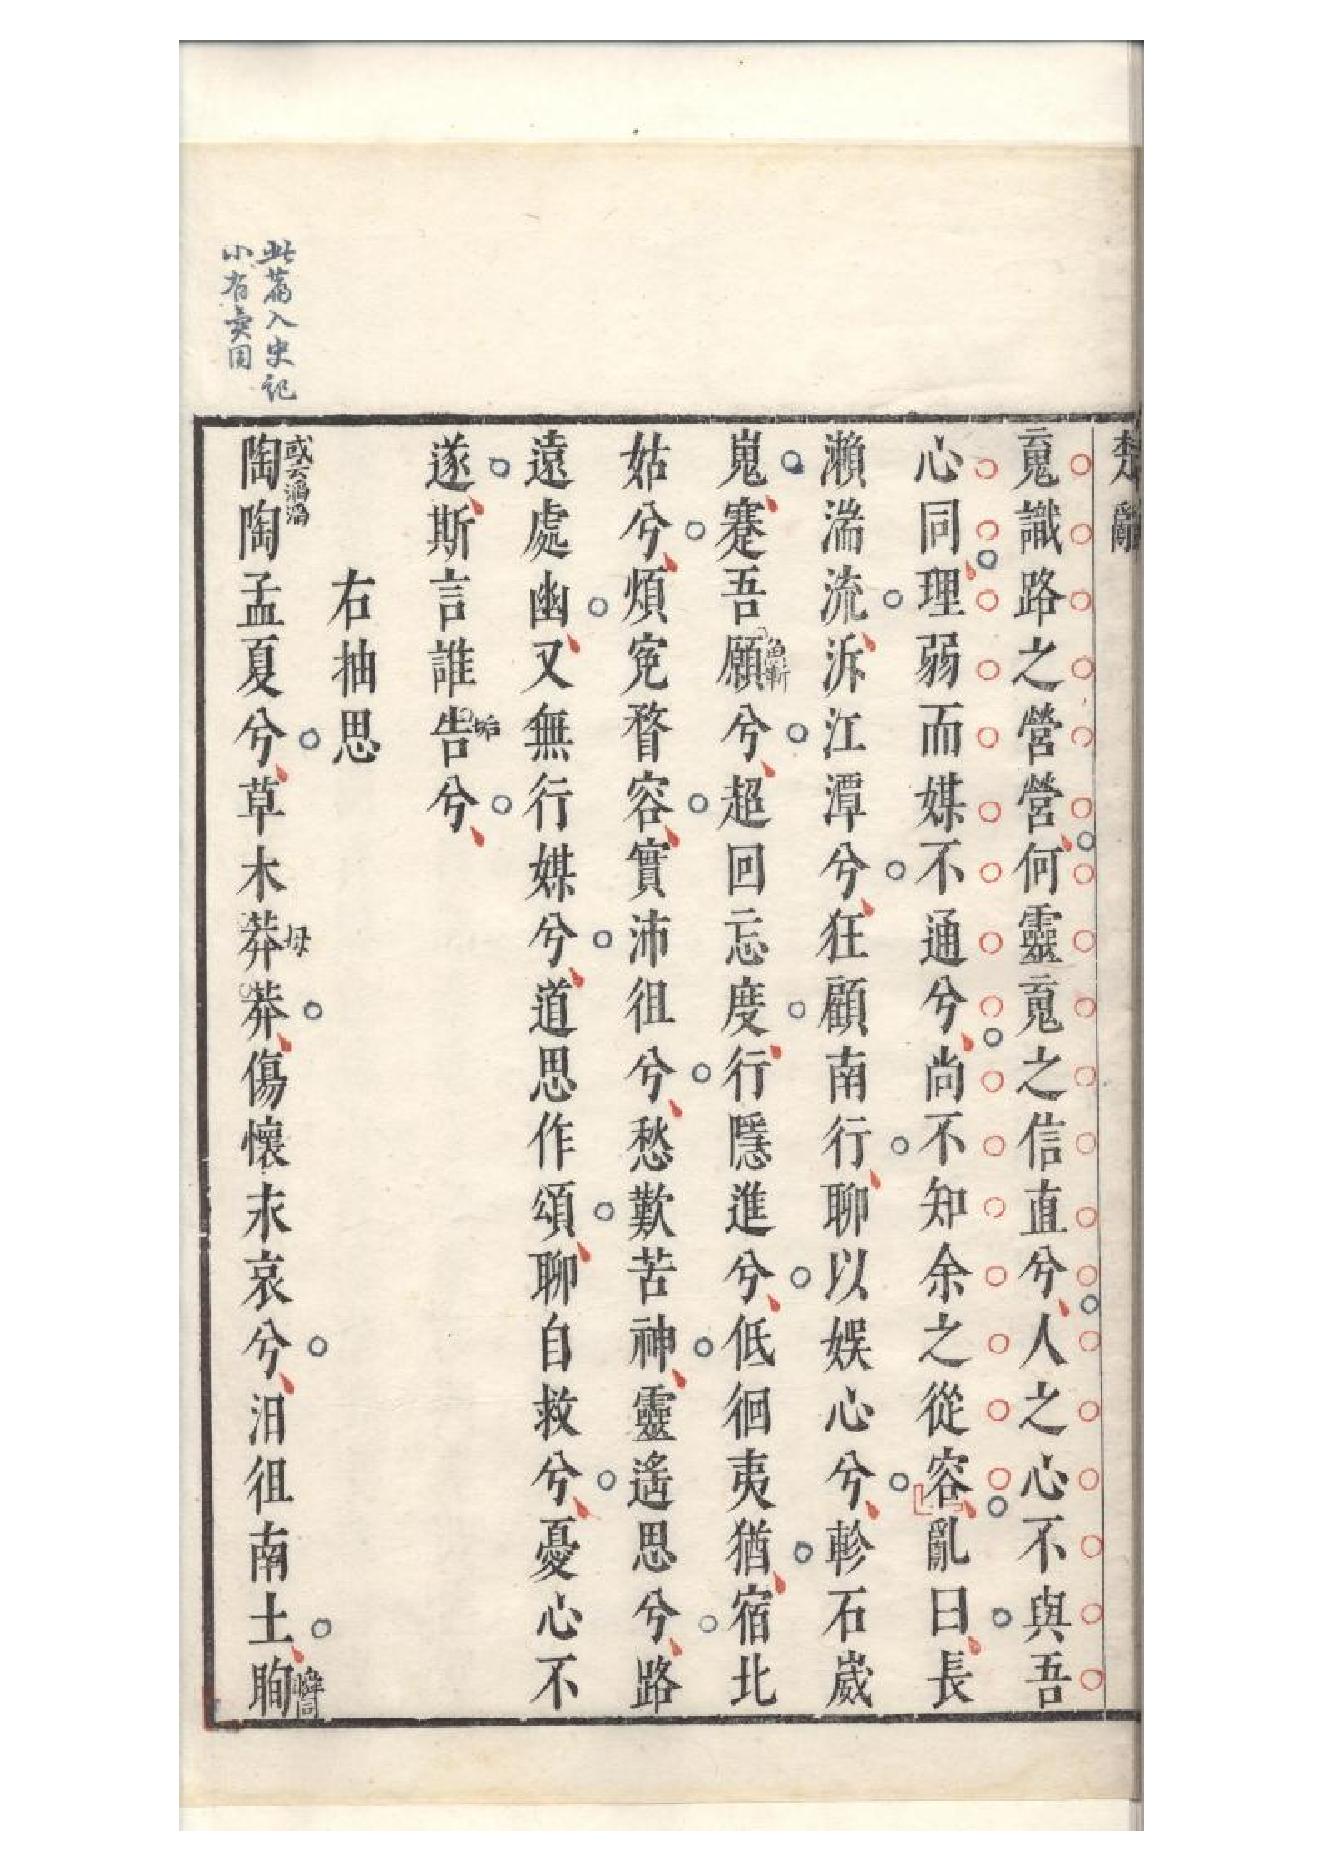 楚辭
䰟識路之營營何靈䰟之信直兮人之心不與吾
心同理弱而媒不通兮尚不知余之從容亂曰長
瀨湍流泝江潭兮狂顧南行聊以娛心兮軫石崴
嵬蹇吾願兮超回忘度行隱進兮低徊夷猶宿北
姑兮煩寃瞀容實沛徂兮愁歎苦神靈遙思兮路
遠處幽又無行媒兮道思作頌聊自救兮憂心不
遂斯言誰告兮
垢
右抽思
或云滔滔
陶陶孟夏兮草木莽莽傷懷永哀兮汨徂南土眴
母
瞬同
此篇入史記
小有異同